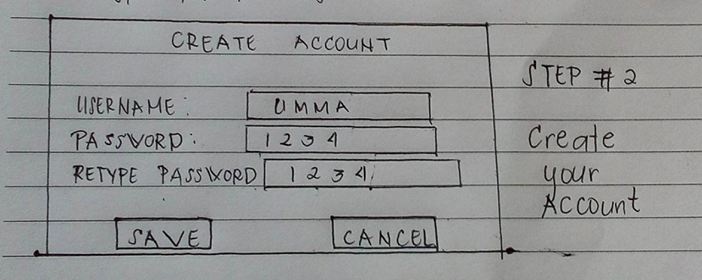 CREATE ACCOUNT
USERNAME: UMMA
PASSWORD: 1234
RETYPE PASSWORD 1234
SAVE CANCEL
STEP # 2
Create
your
Account